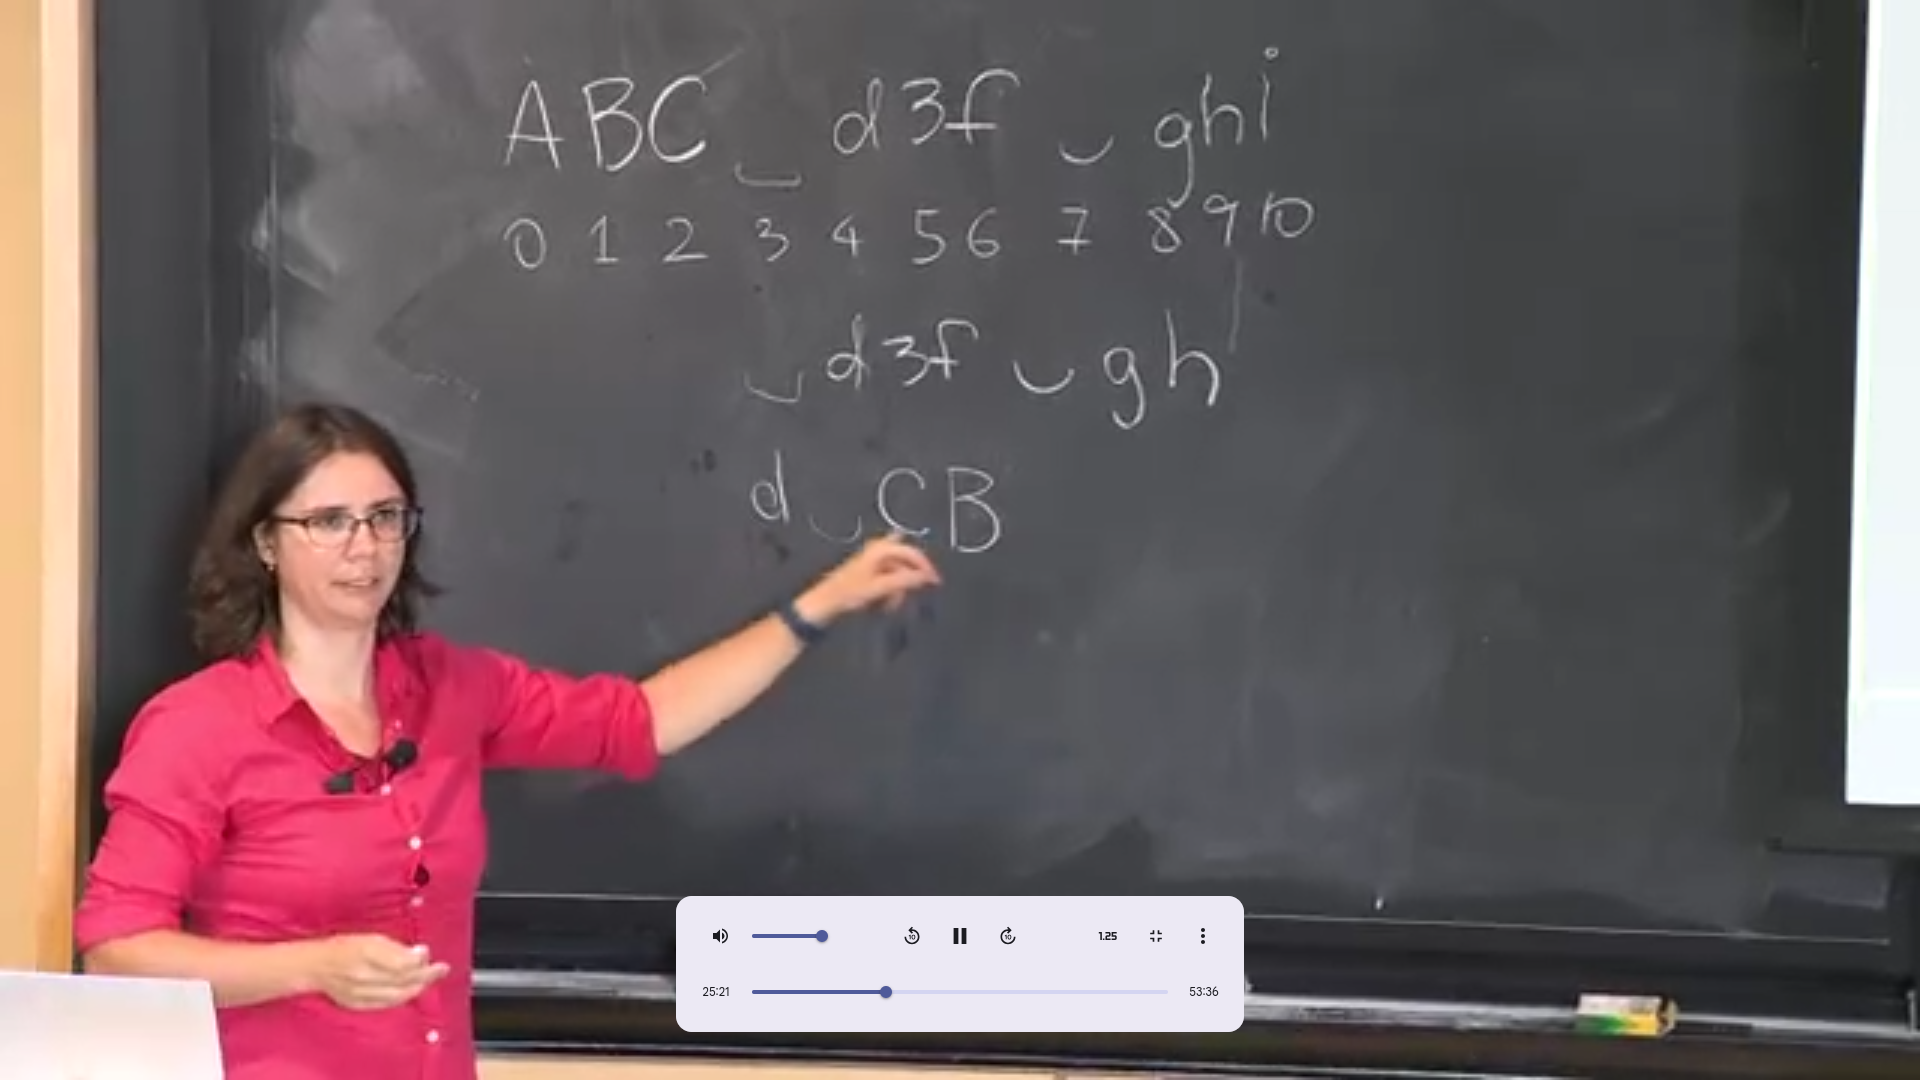 ABC ⌣ d3f ⌣ ghi
0 1 2 3 4 5 6 7 8 9 10
⌣ d3f ⌣ gh
d ⌣ CB
10 10 1.25
25:21 53:36